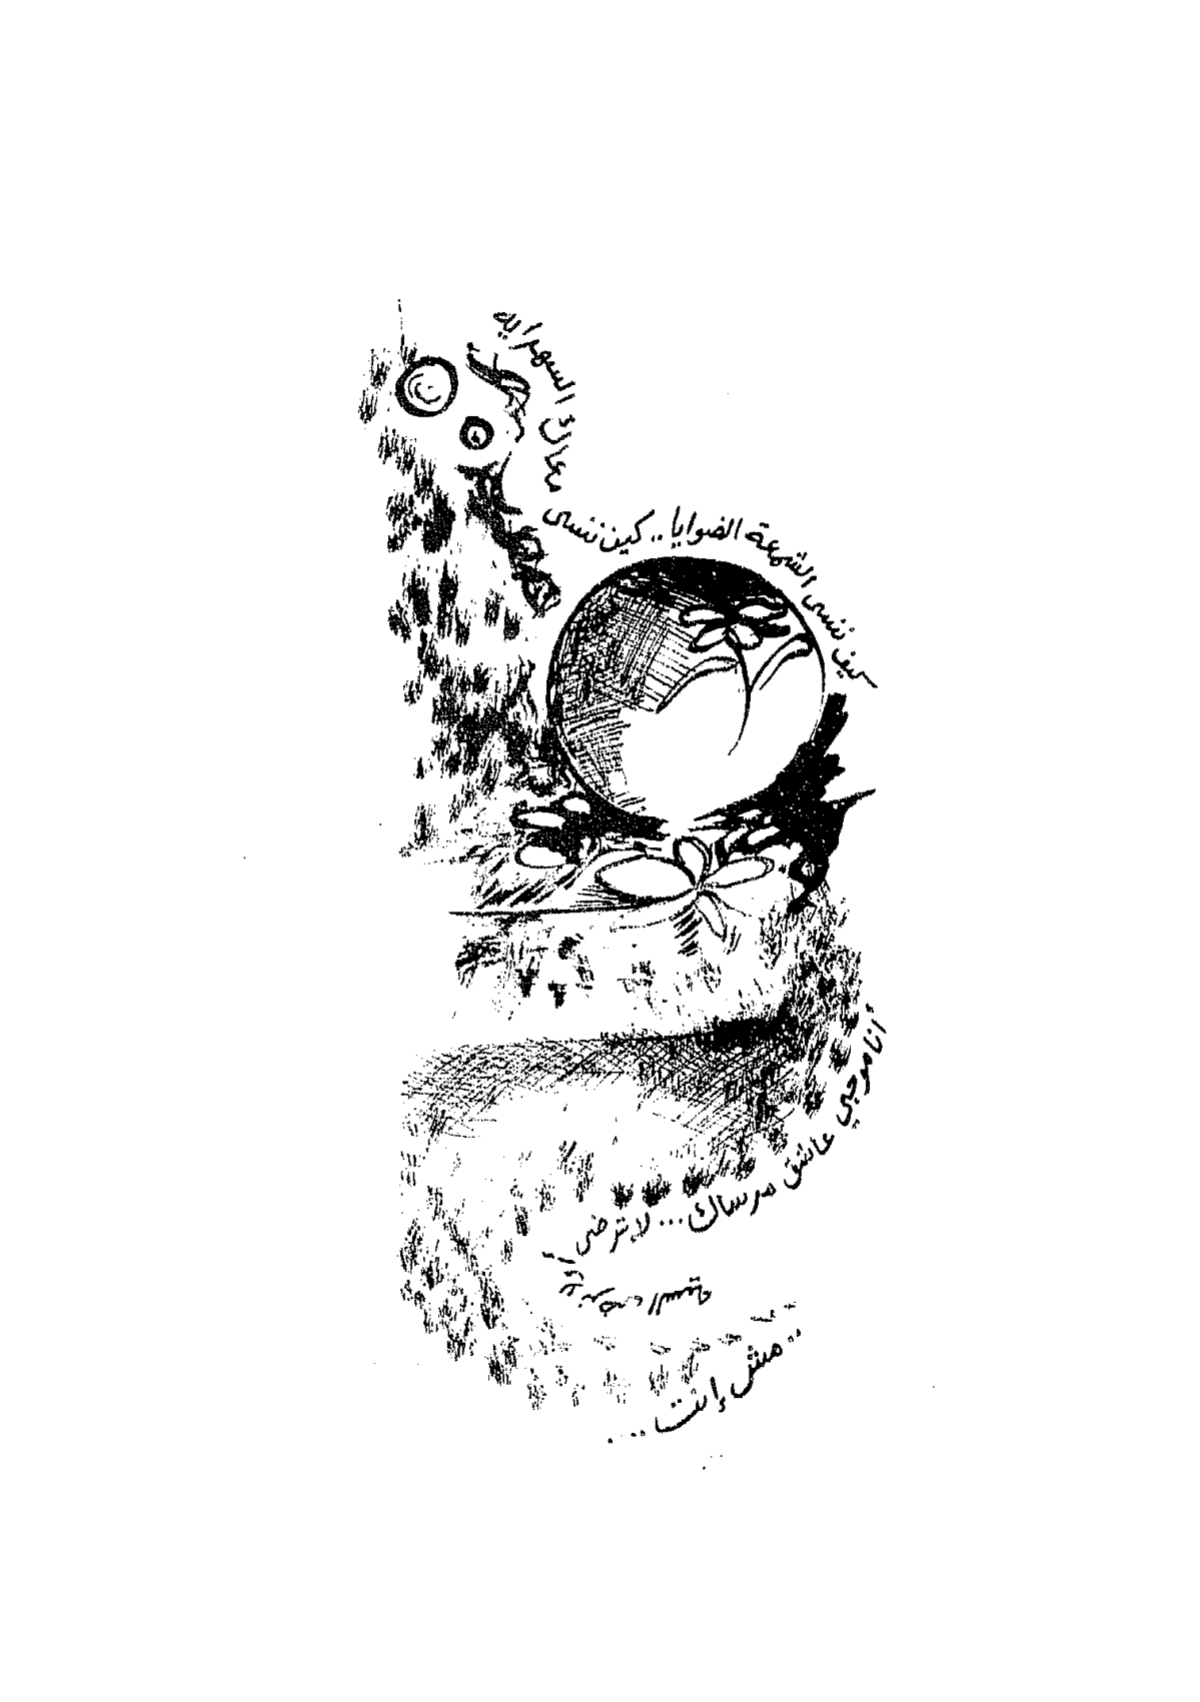 كيف ننسى الشمعة الضوايا.. كيف ننسى
معاك السهراية
أنا موجي عاشق مرساك... لا ترضى
أولا
.. مش إنت ....